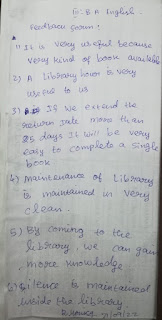 G: B A English.
Feedback Form:
1) It is very useful because
very kind of book available
2) A Library hour is very
useful to us
3) If we extend the
return date more than
25 days It will be very
easy to complete a single
book.
4) Maintenance of Library
is maintained in very
clean.
5) By coming to the
library, we can gain
more knowledge.
6) Silence is maintained
inside the library